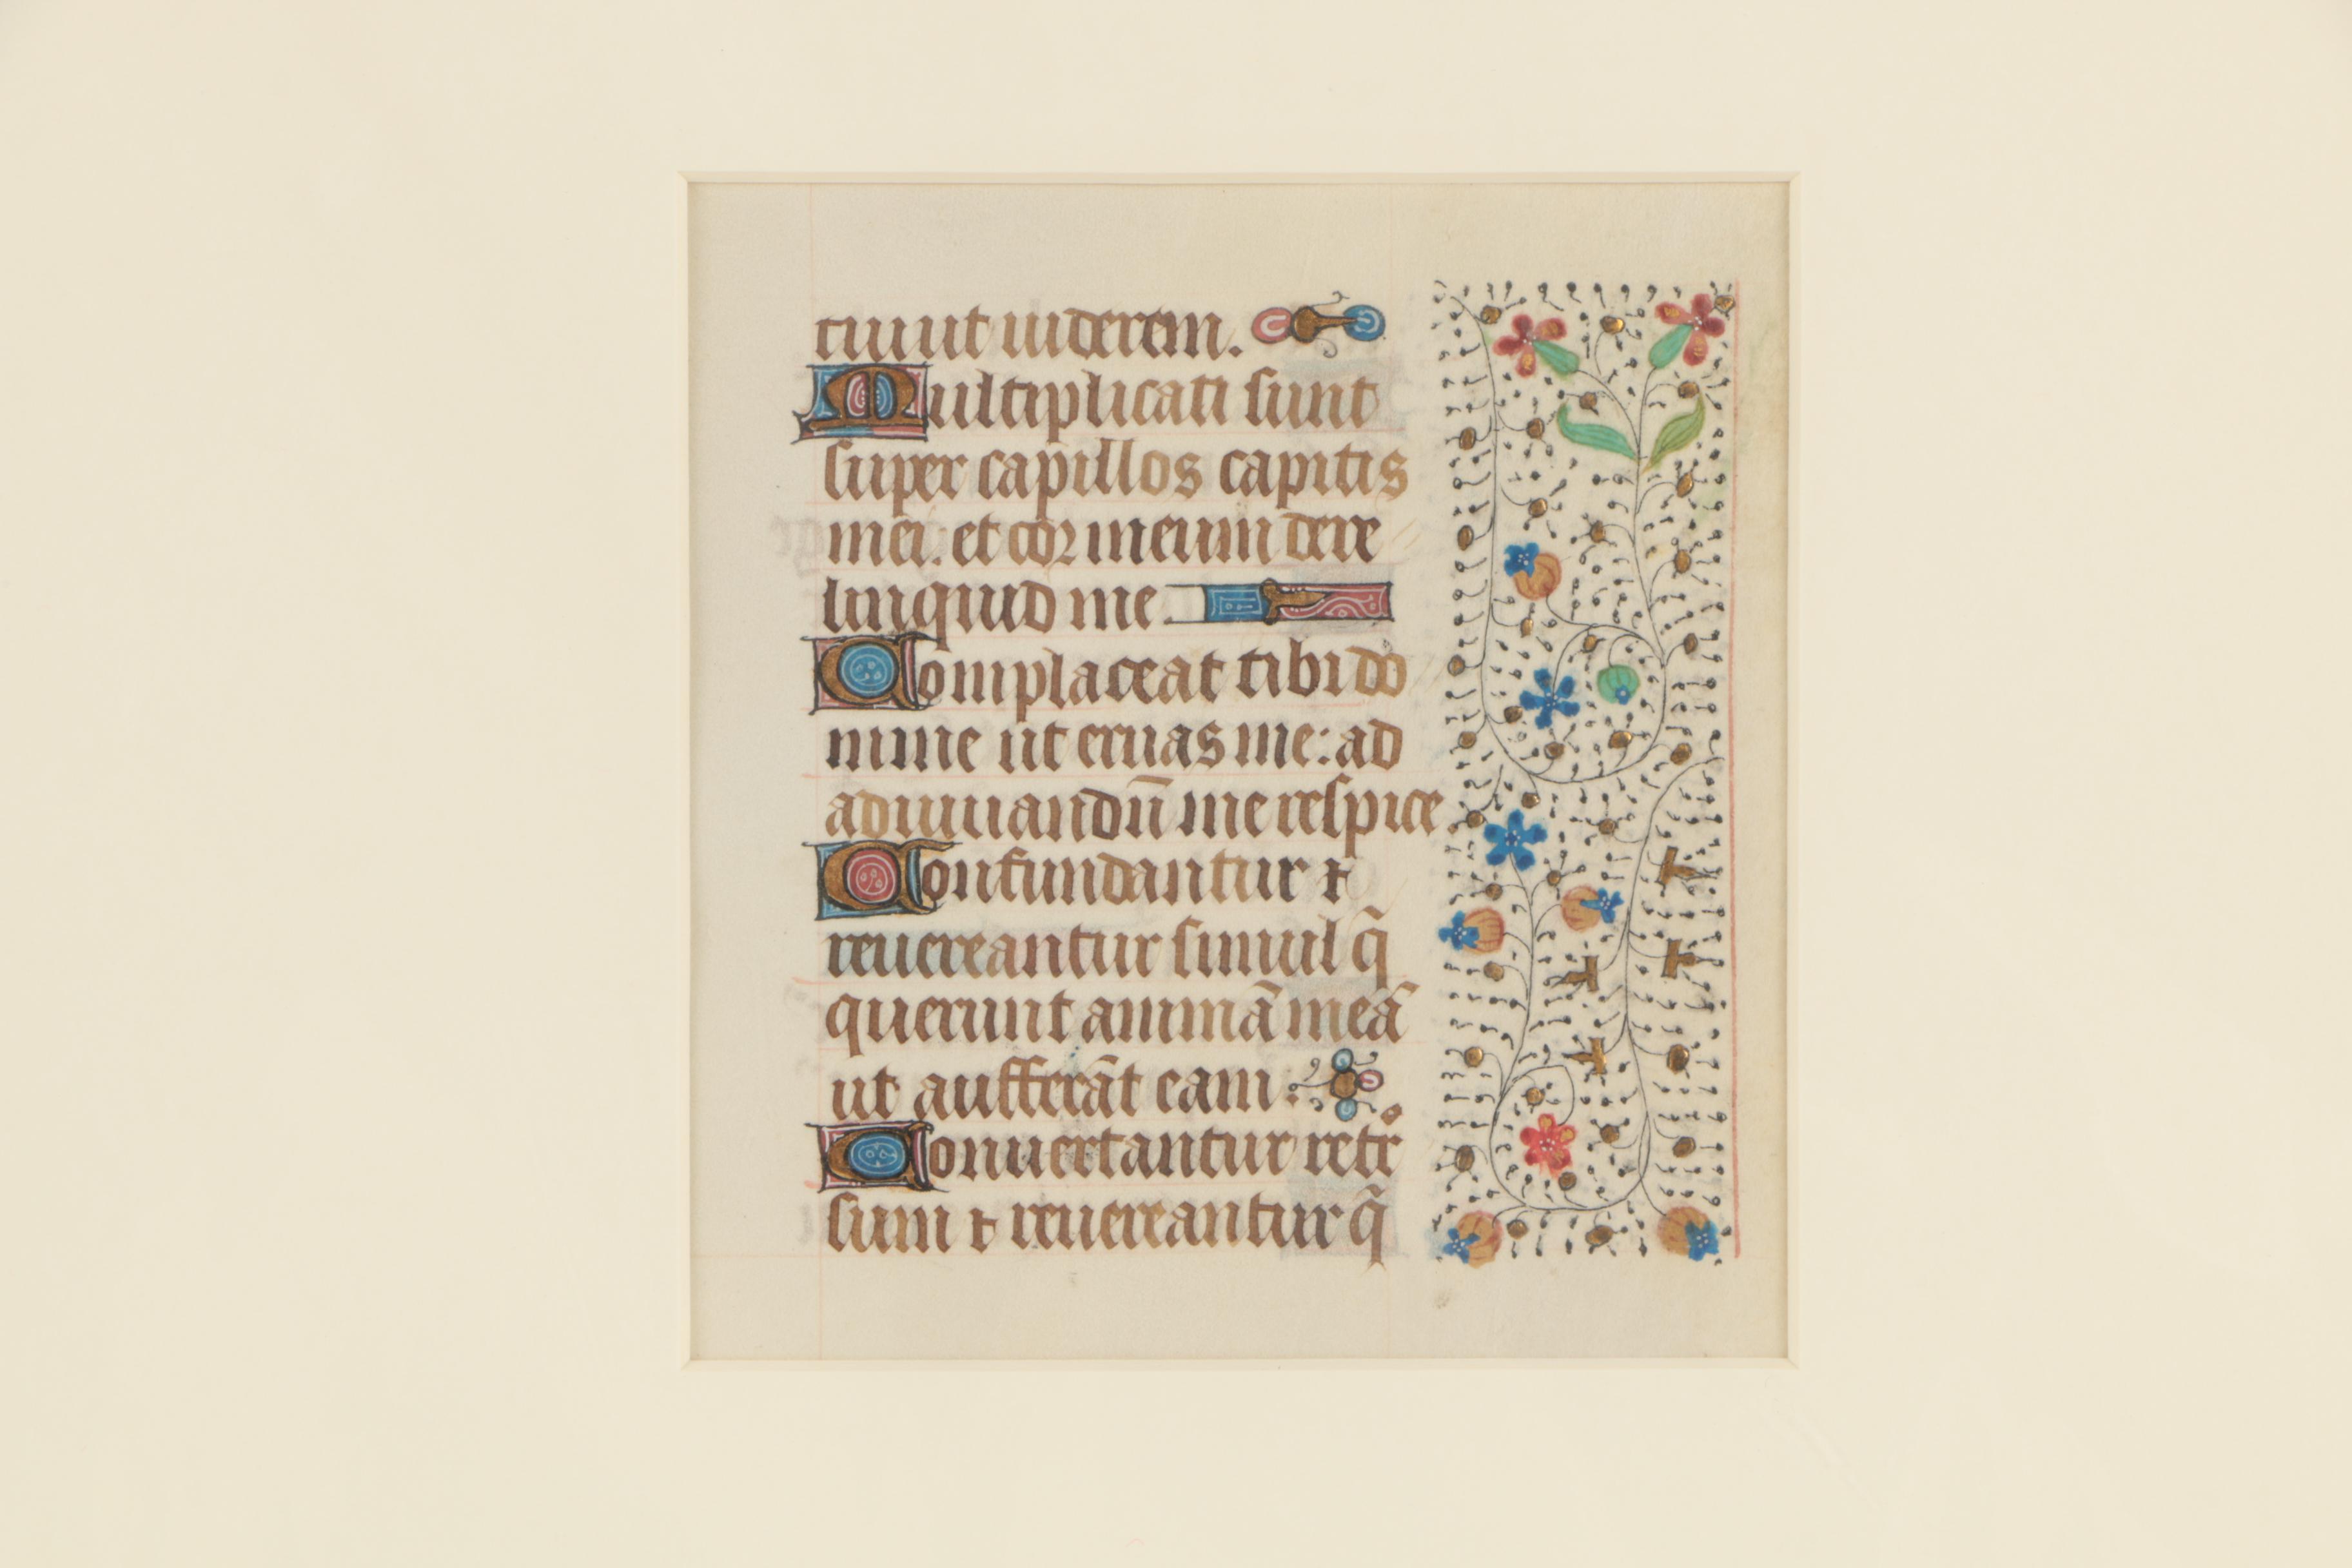 tui ut uiderem.
Multiplicati sunt
super capillos capitis
mei. et cor meum dere
linquid me.
Complaceat tibi do
mine ut eruas me: ad
adiuuandū me respice.
Confundantur ⁊
reuereantur simul q̄
querunt animā meā
ut aufferāt eam:
Conuertantur retrº
sum ⁊ reuereantur q̄